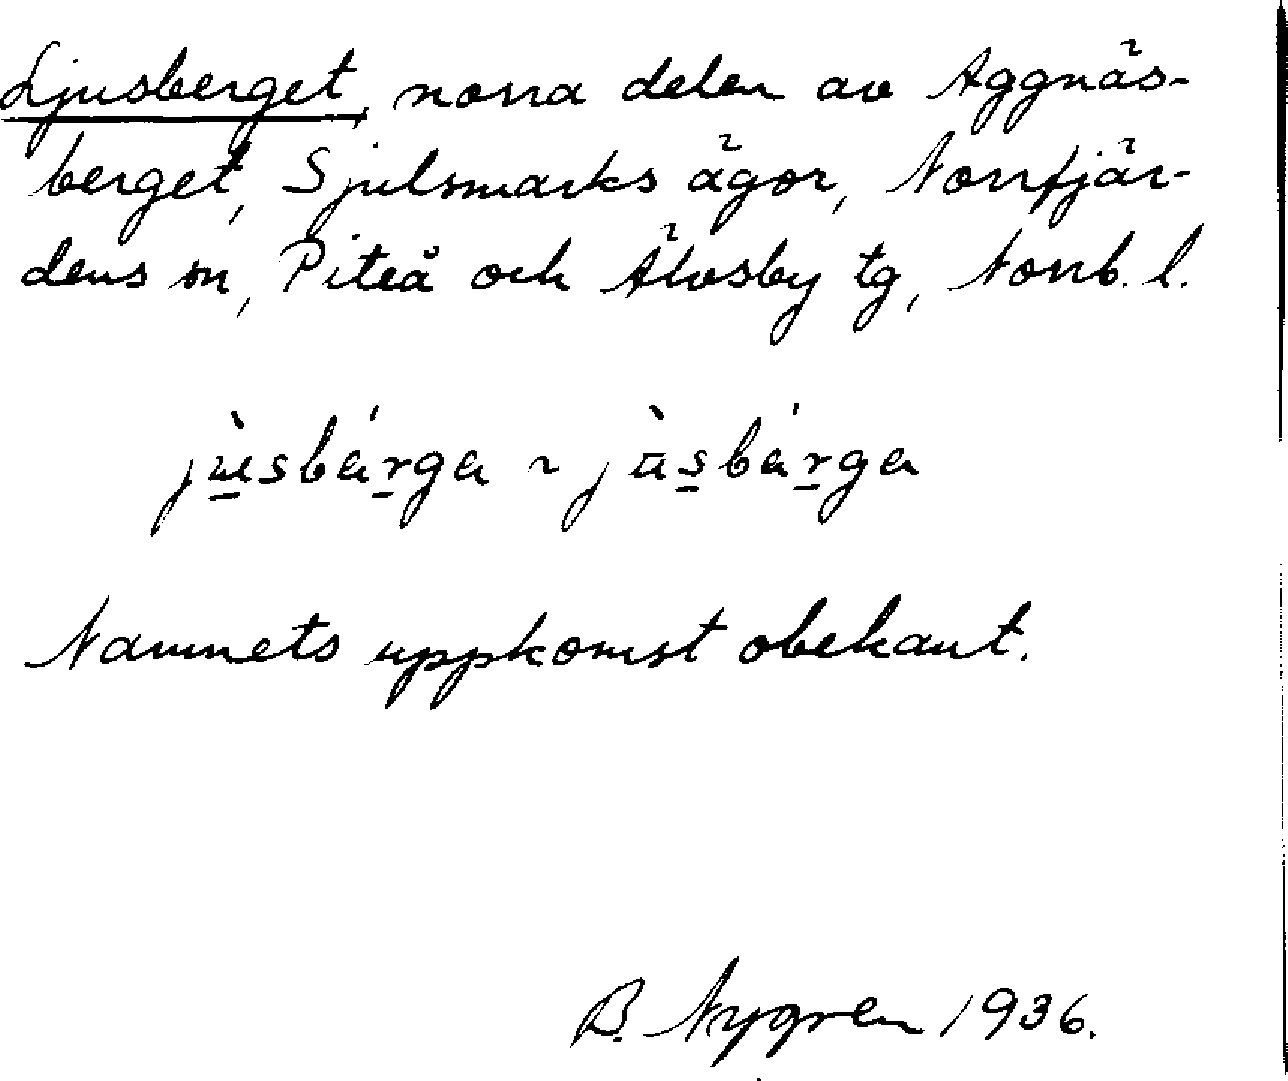 Ljusberget, norra delen av Aggnäs-
berget, Sjulsmarks ägor, Norrfjär-
dens sn, Piteå och Älvsby tg, Norrb. l.
Namnets uppkomst obekant.
B. Nygren 1936.